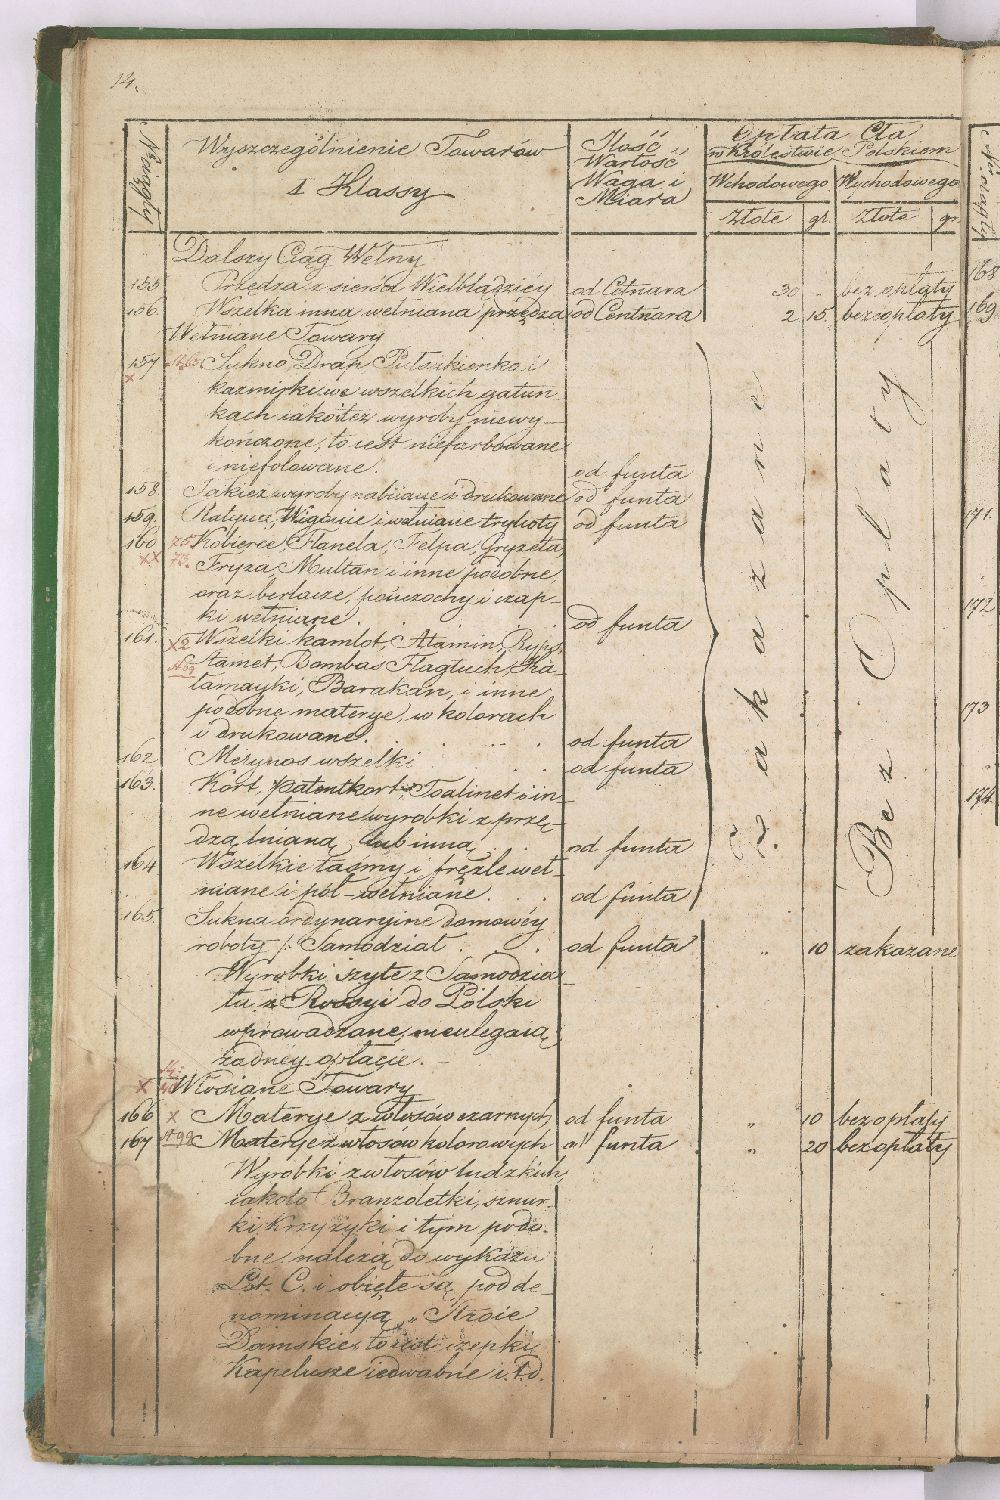 14.
N° ciągły
Wyszczególnienie Towarów
1 Klassy
Ilość
Wartość
Waga i
Miara
Opłata Cła
w Królestwie Polskiem
Wchodowego Wychodowego
Złote gr. Złota gr.
Dalszy Ciąg Wełny
155 Przędza z sierści Wielbłądzićy od Cetnara 30 - bez opłaty
156. Wszelka inna wełniana przędza od Centnara 2 15. bez opłaty
Wełniane Towary
157 Sukno, Drap, Pułsukienko i
x kazmirki we wszelkich gatun-
kach iakoteż wyroby niewy-
kończone, to iest niefarbowane
i niefolowane. od funta
158. Takież wyroby nabiiane i drukowane od funta
159. Ratyna, Wigonie i wełniane trykoty od funta
160 Kobierce, Flanela, Felpa, Gryzeta,
xx Fryza, Multan i inne podobne,
oraz berlacze, pończochy i czap-
ki wełniane. od funta
161. x2 Wszelki kamlot, Atamin, Ryps,
Stamet, Bombas Flagtuch, Ka-
łamayki, Barakan, i inne
podobne materye, w kolorach
i drukowane. od funta
162 Merynos wszelki od funta
163. Kort, patentkort, Toalinet i in-
ne wełniane wyrobki z przę-
dzą lnianą, lub inną. od funta
164 Wszelkie taśmy i fręzle weł-
niane i pół-wełniane. od funta
Zakazane
Bez Opłaty
165 Sukna ordynaryine domowéy
roboty /: Samodział od funta „ 10 zakazane
Wyrobki szyte z Samodzia-
łu z Rossyi do Polski
wprowadzane, nieulegaią
żadney opłacie. -
x Włosiane Towary
166 x Materye z włosów czarnych od funta „ 10 bez opłaty
167 Materye z włosow kolorowych od funta „ 20 bez opłaty
Wyrobki z włosów ludzkich,
iakoto: Branzoletki, sznur-
ki, Krzyżyki i tym podo-
bne, należą do wykazu
Lit. C. i obięte są, pod de-
nominacyą „ Stroie
Damskie, to iest czepki
Kapelusze iedwabne i.t.d.
168
169
171.
172
173
174.